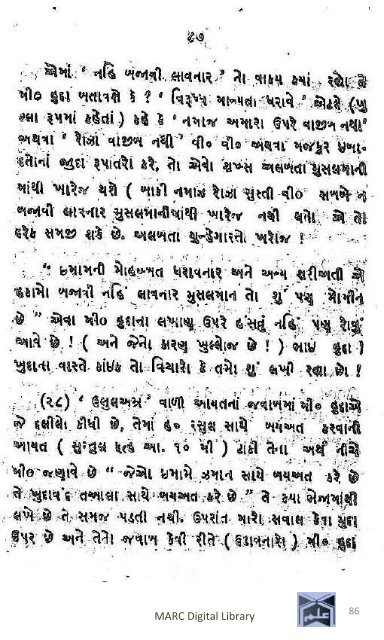 ૯૭
એમાં “ નહિ બજાવી લાવનાર ” તો વાક્ય ક્યાં રહ્યો છે
મી૦ હુદા બતાવશે કે ? “ વિરૂધ્ધ માન્યતા ધરાવે ” એટલે ( ખુ
લ્લા રૂપમાં કહેતાં ) કહે કે “ નમાજ અમારા ઉપર વાજીબ નથી”
અથવા “ રોઝા વાજીબ નથી ” વી૦ વી૦ અથવા મજકુર ઇબા-
દતોનાં જુદા રૂપાંતરો કરે, તો એવો શખ્સ અલબતા મુસલમાની
માંથી ખારેજ થશે ( બાકી નમાજ રોઝા સુસ્તી વી૦ સબબે ન
બજાવી લાવનાર મુસલમાનીમાંથી ખારેજ નથી થતો. એ તો
હરેક સમજી શકે છે. અલબતા મુન્કેનાસ્તે ખારેજ !
“ ઇમામની મોહબ્બત ધરાવનાર અને અન્ય શરીઅતી એ
હકામો બજાવી નહિ લાવનાર મુસલમાન તો શું પણ મોમીન
છે ” એવા મી૦ હુદાના લખાણ ઉપર હસવું નહિ પણ રોવું
આવે છે ! ( અને જેનાં કારણ ખુલ્લાંજ છે ! ) ભાઇ હુદા !
ખુદાના વાસ્તે કાંઇક તો વિચારો કે તમો શું લખી રહ્યા છો !
(૨૮) “ ઉલુલઅમ્ર ” વાળી આયતનાં જવાબમાં મી૦ હુદાએ
જે દલીલો કીધી છે, તેમાં હ૦ રસુલ સાથે બયઅત કરવાની
આયત ( સુરતુલ ફત્હ આ. ૧૦ મી ) ટાંકી તેના અર્થ નીચે
મી૦ જણાવે છે “ જેઓ ઇમામે ઝમાન સાથે બયઅત કરે છે
તે ખુદાવંદ તઆલા સાથે બયઅત કરે છે. ” તે કયા ભેજામાંથી
લખે છે તે સમજ પડતી નથી. ઉપરાંત મારો સવાલ કેવા મુદ્દા
ઉપર છે અને તેનો જવાબ કેવી રીતે ( ઉડાવનારો ) મી૦ હુદા
MARC Digital Library
86